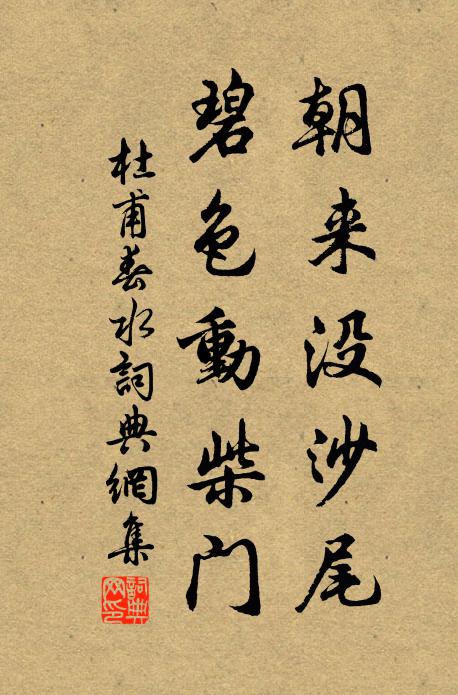 朝来没沙尾
碧色動柴门
杜甫春水詞典網集
詞典网印